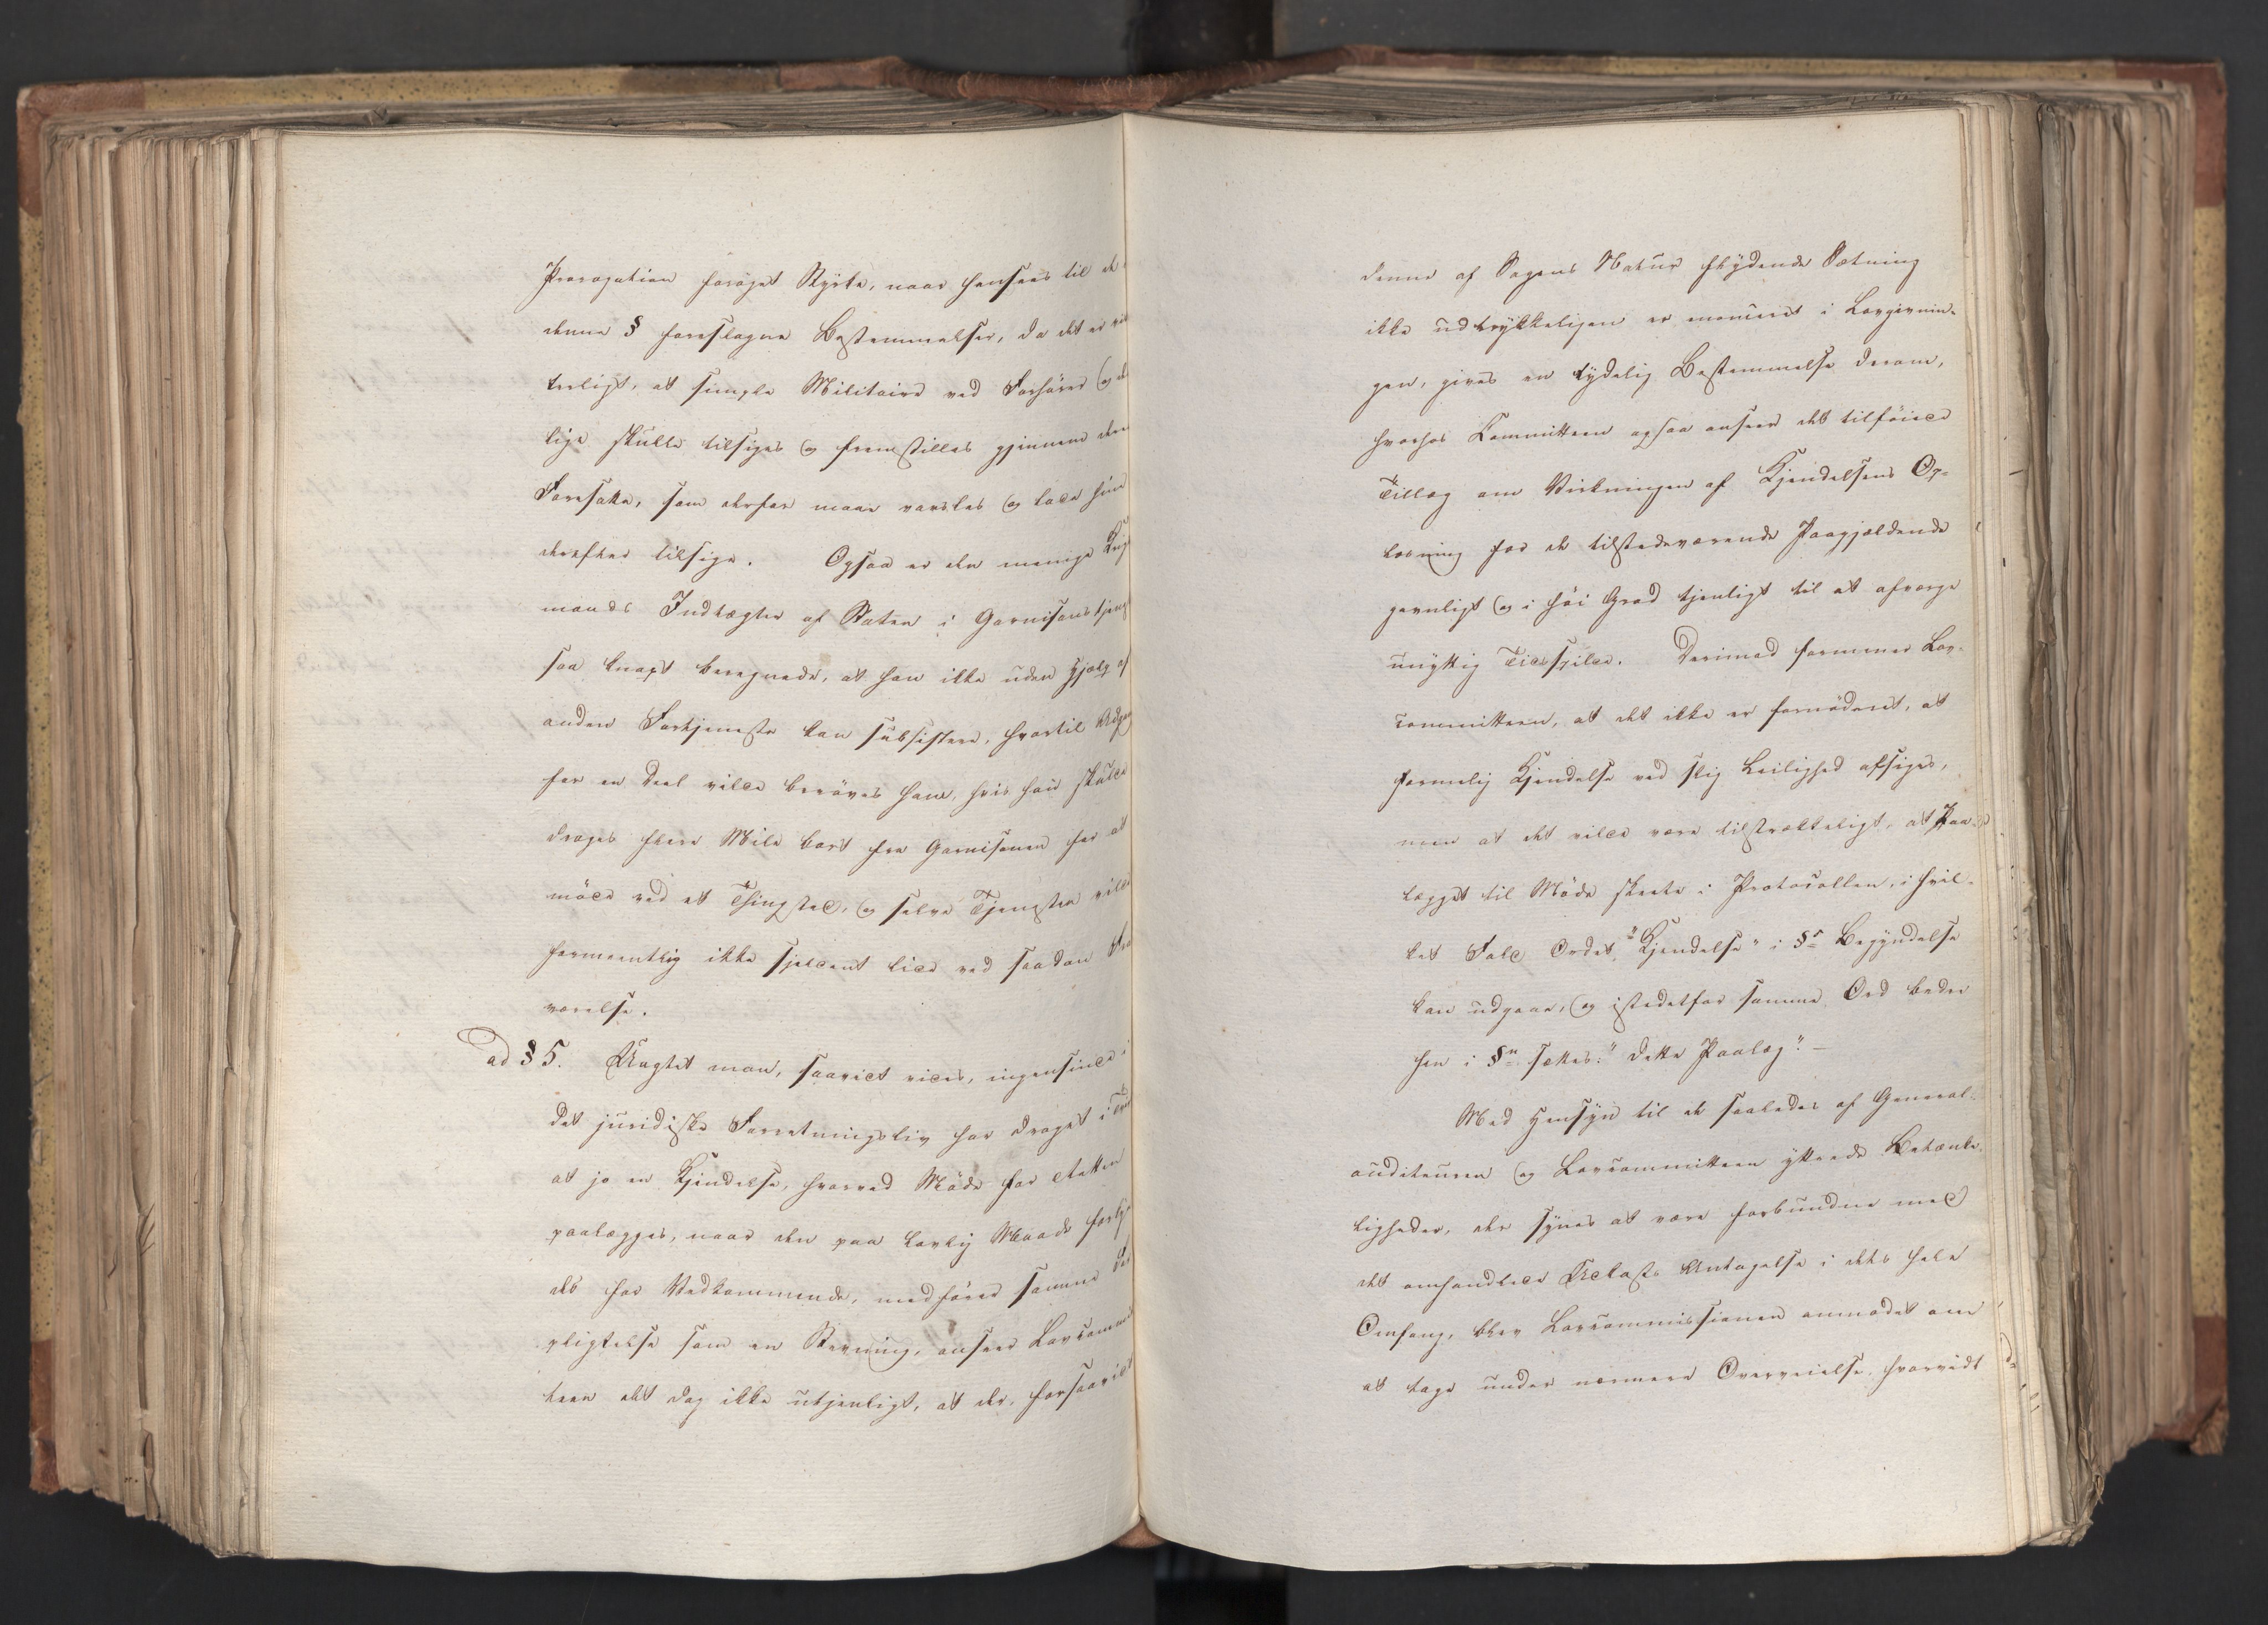 Prorogation forøget Styrke, naar hensees til de
denne § foreslagne Bestemmelser, da det er
terligt, at simple Militaire ved Forhører og
lige skulle tilsiges og fremstilles gjennem dere
Foresatte, som derfor maae varsles og lade hine
derefter tilsige. Ogsaa er den menige Krig
mands Indtægter af Staten i Garnisonstjene
saa knapt beregnede, at han ikke uden Hjelp af
anden Fortjeneste kan subsistere, hvortil Adgan
for en Deel vilde berøves ham, hvis han skulde
drages flere Mile bort fra Garnisonen for at
møde ved et Thingsted, og selve Tjenesten vilde
formeentlig ikke sjeldent lide ved saadan Fra
værelse.
ad § 5. Uagtet man, saavidt vides, ingensinde i
det juridiske Forretningsliv har draget i Tvivl
at jo en Kjendelse, hvorved Møde for Retten
paalægges, naar den paa lovlig Maade forkyn
des for Vedkommende, medfører samme For
pligtelse som en Stevning, anseer Lovcommit
teen det dog ikke utjenligt, at der, forsaavidt
denne af Sagens Natur flydende Sætning
ikke udtrykkeligen er emaneret i Lovgivnin-
gen, gives en tydelig Bestemmelse derom,
hvorhos Committeen ogsaa anseer det tilføiede
Tillæg om Virkningen af Kjendelsens Op-
læsning for de tilstedeværende Paagjældende
gavnligt og i høi Grad tjenligt til at afværge
unyttig Tidsspilde. Derimod formener Lov-
committeen, at det ikke er fornødent, at
formelig Kjendelse ved slig Leilighed afsiges,
men at det vilde være tilstrækkeligt, at Paa-
lægget til Møde skeete i Protocollen, i hvil-
ket Fald Ordet "Kjendelse" i §s Begyndelse
kan udgaae, og istedetfor samme Ord bedre
hen i §n sættes: "dette Paalæg". —
Med Hensyn til de saaledes af General-
auditeuren og Lovcommitteen yttrede Betænke-
ligheder, der synes at være forbundne med
det omhandlede Udkasts Antagelse i dets hele
Omfang, blev Lovcommissionen anmodet om
at tage under nærmere Overveielse, hvorvidt